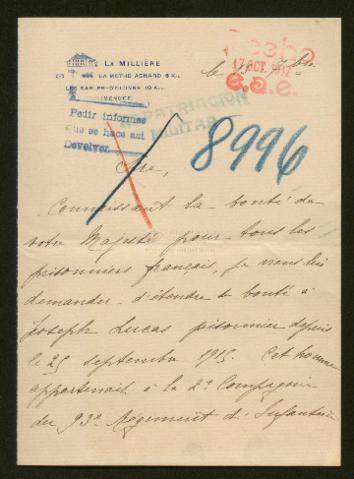 LA MILLIÈRE
LA MOTHE ACHARD 6 K.
LES SABLES-D'OLONNE 10 K.
(VENDÉE)
17 OCT. 1917
e.a.e.
le 7bre
REPATRIACIÓN
MILITAR
Pedir informes
que se hace así
Devolver
8996
Sire,
Connaissant la bonté de
votre Majesté pour tous les
prisonniers français, je viens lui
demander d'étendre sa bonté à
Joseph Lucas prisonnier depuis
le 25 septembre 1915. Cet homme
appartenait à la 2e Compagnie
du 93e Régiment d'Infanterie